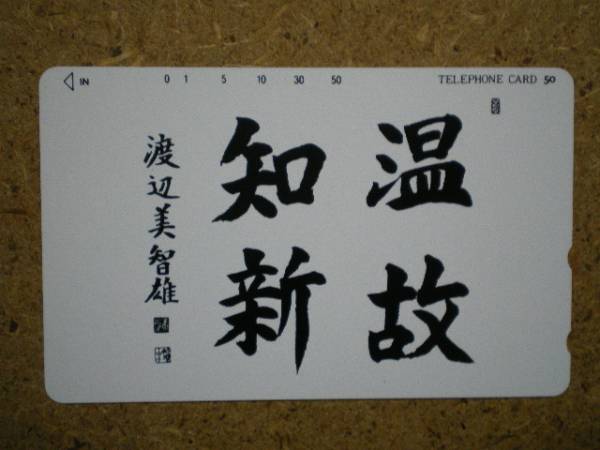 ◁ IN 0 1 5 10 30 50 TELEPHONE CARD 50
温故
知新
渡辺美智雄